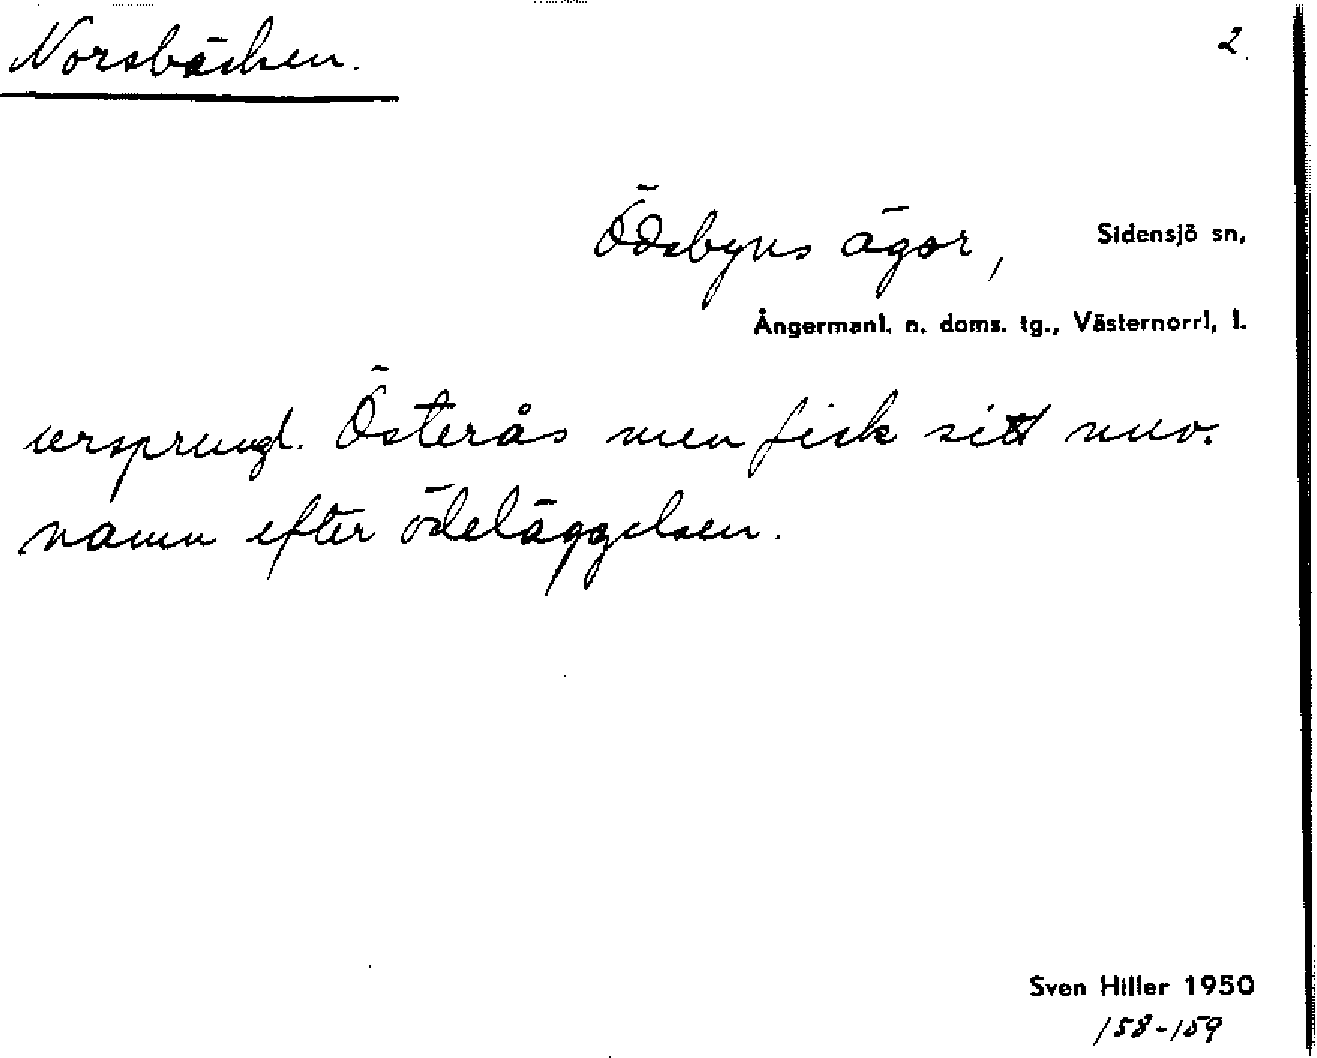 Norsbäcken.
2.
Ödsbyns ägor, Sidensjö sn,
Ångermanl. n. doms. tg., Västernorrl, l.
ursprungl. Österås men fick sitt nuv.
namn efter ödeläggelsen.
Sven Hiller 1950
158-159